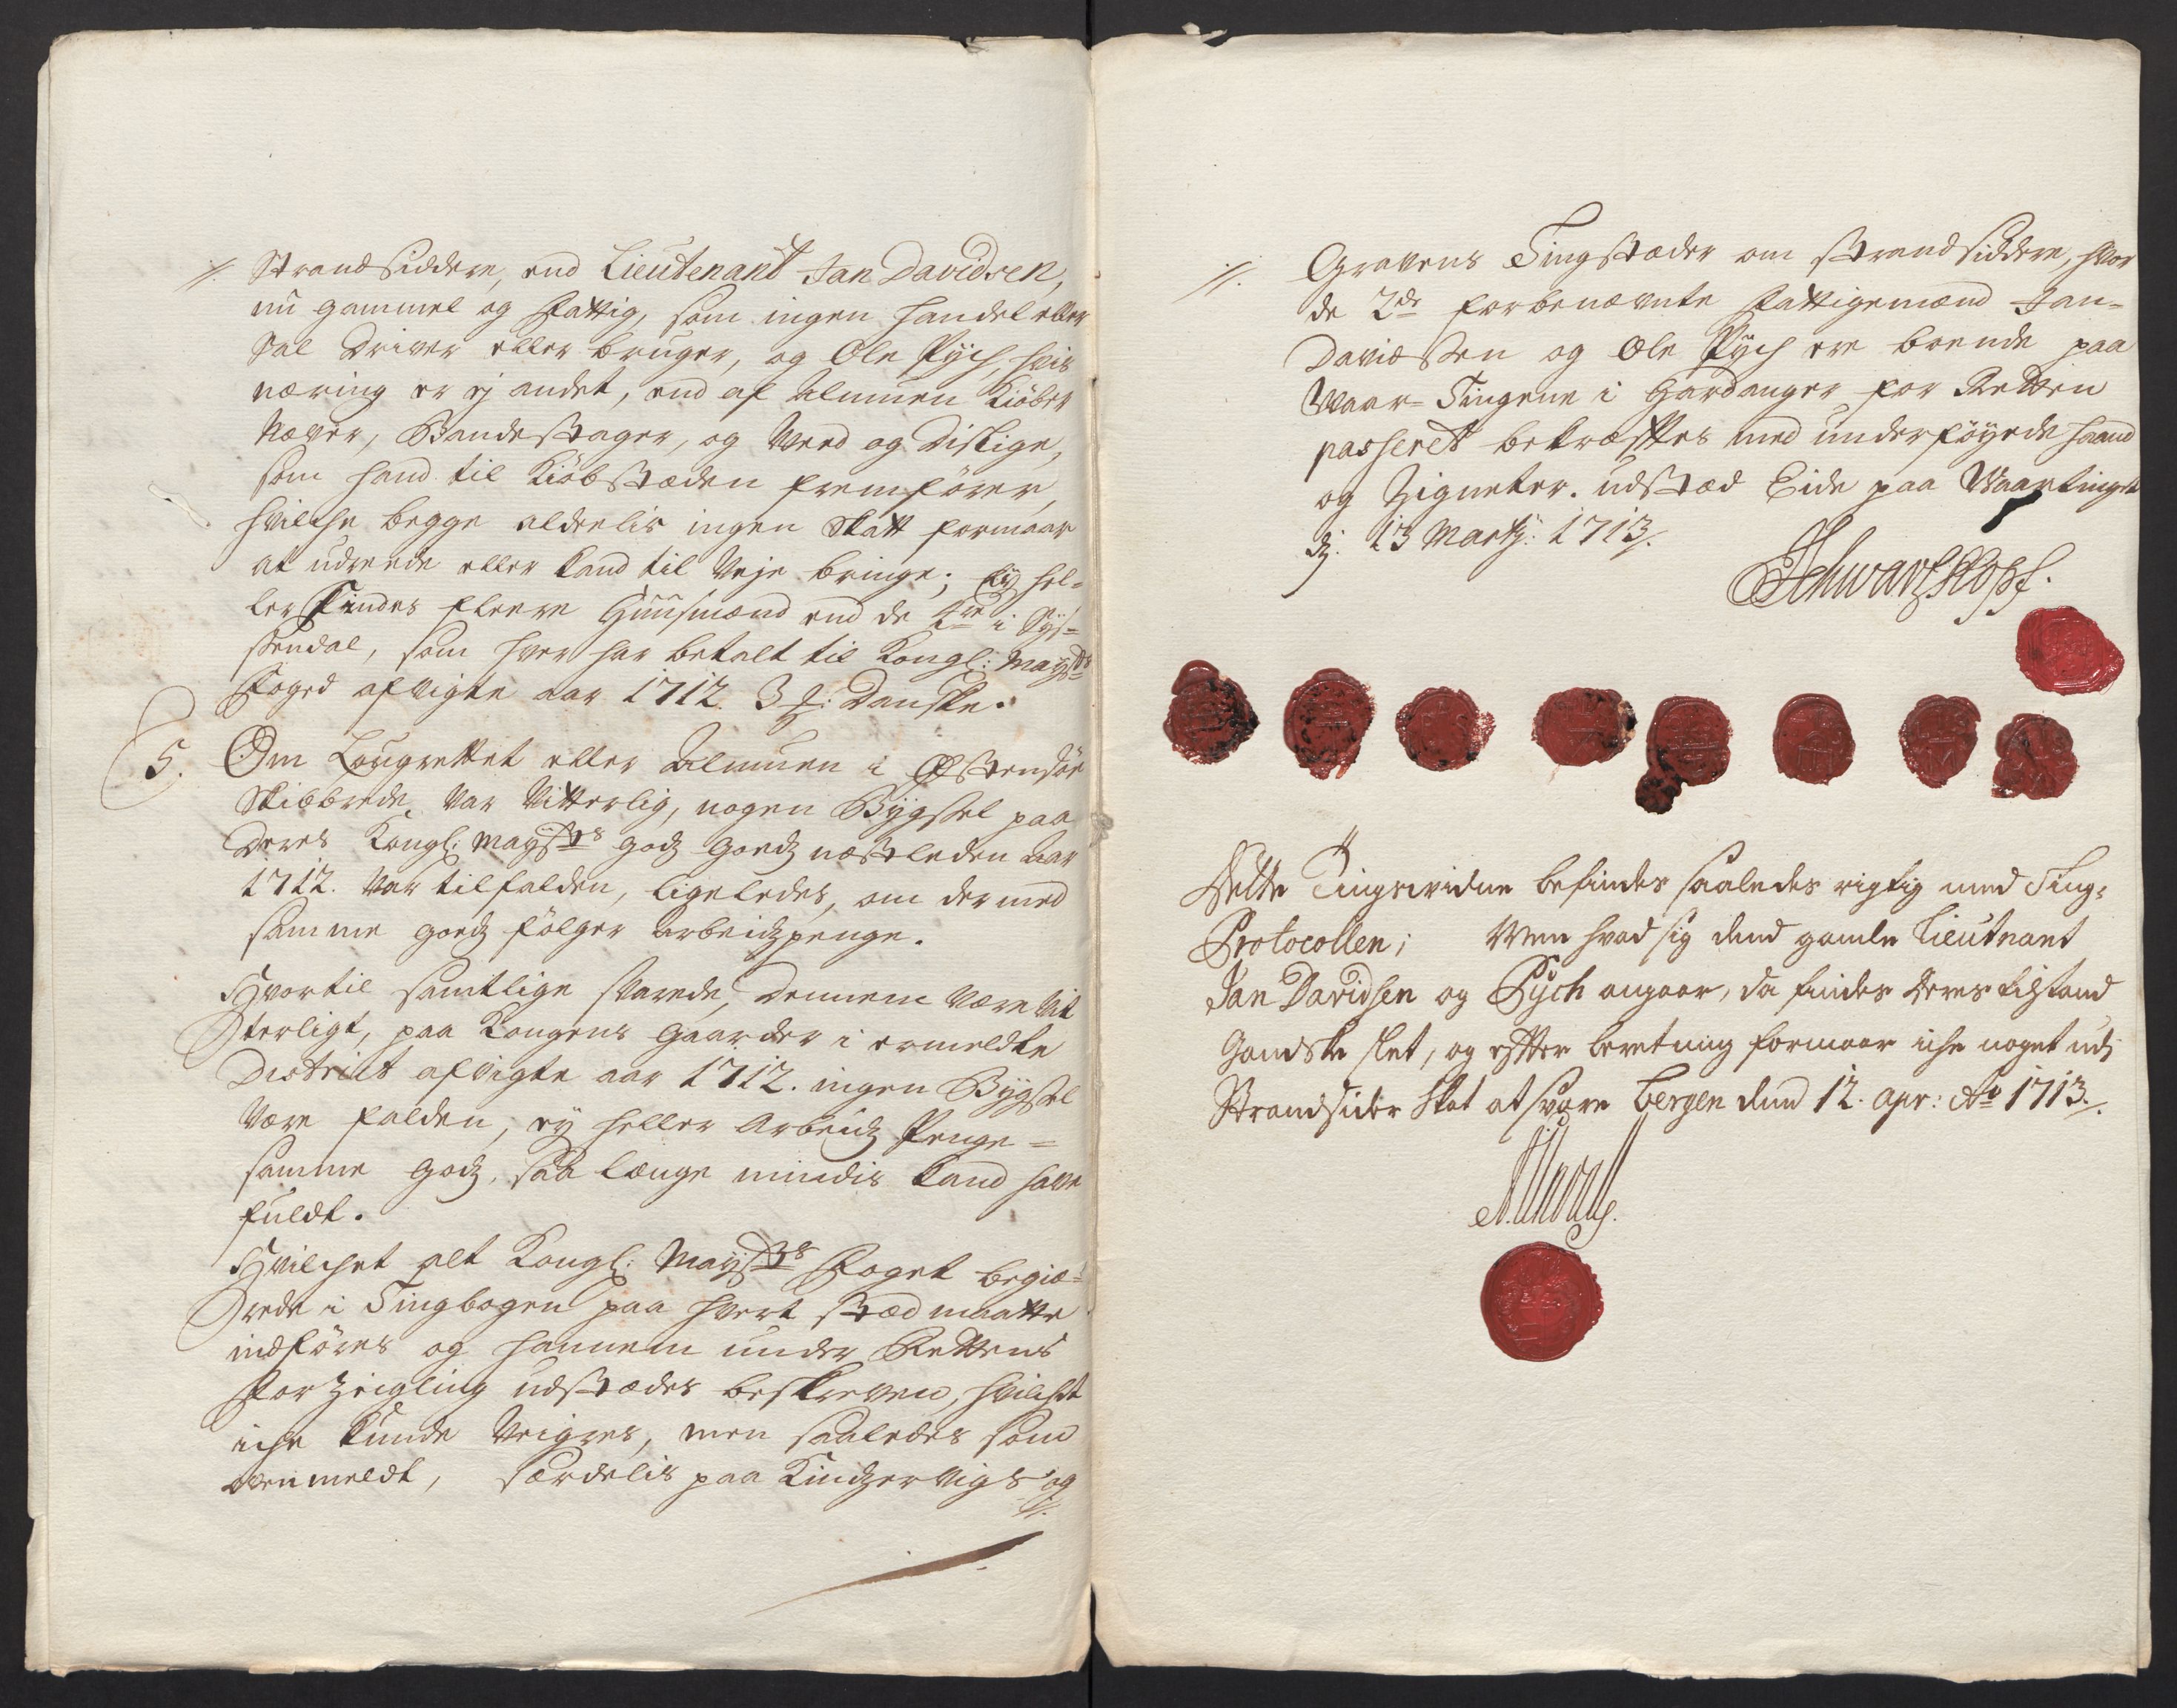 //. Strandsiddere, end Lieutenant Jan Davidsen,
nu gammel og fattig, som ingen handel eller
Sal driver eller bruger, og Ole Pÿch, hvis
næring er ej andet, end af Almuen Kiöber
Næver, Bandestager, og Veed og dislige,
som hand til Kiöbstæden fremförer,
hvilche begge aldelis ingen Skatt formaar
at udreede eller kand til Veje bringe; Eÿ hel-
ler findes fleere Huusmænd end de i Sÿs-
sendal, som hver har betalt til Kongl: Maÿsts
Foged afvigte aar 1712. 3 Danske.
5. Om Laugrettet eller Almuen i Östensöe
Skibbrede, var vitterlig, nogen Bÿgsel paa
Deres Kongl: Maÿsts godz næstleden Aar
1712. Var tilfalden, ligeledes, om der med
samme goedz fölger Arbeidzpenge.
Hvortil samtlige svarede, dennem være Vit
terligt, paa Kongens Gaarder i ermeldte
District afvigte aar 1712. ingen Bÿgsel
være falden, eÿ heller Arbeidz Penge =
samme godz, saa længe mindis kand have
fuldt.
Hvilchet alt Kongl: Maÿsts Foget begiæ=
rede i Tingbogen paa hvert stæd maatte
indföres og hannem under Rettens
Forzeigling udstædes beskreven, hvilchet
iche kunde Veigres, men saaledes som
ovenmeldt, særdelis paa Kindzervigs og
//.
//. Gravens Tingstæder om strandsiddere, hvor
de 2de forbenævnte fattigemænd Jan=
Davidssen og Ole Pÿch ere boende paa
Waar-Tingene i Hardanger for Retten
passeret bekræfftes med underföyede haand
og Zigneter. udstæd Eide paa Waartinget
dj. 13 Martÿ: 1713/.
Schwartzkopf.
Dette Tingsvidne befindes saaledes rigtig med Ting-
Protocollen; Men hvad sig dend gamle Lieutnant
Jan Davidsen og Pÿch angaar, da findes deres tilstand
Gandske slet, og efter beretning formaar iche noget udj
Strandsider Skat at svare Bergen dend 12. apr: Ao 1713./.